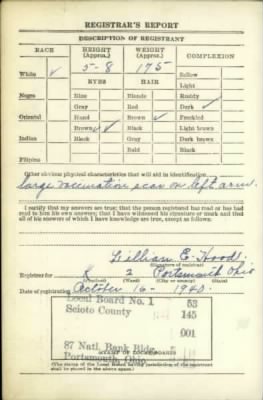 REGISTRAR'S REPORT
DESCRIPTION OF REGISTRANT
RACE HEIGHT (Approx.) WEIGHT (Approx.) COMPLEXION
5-8 175 Sallow
White ✓ Light
EYES HAIR
Negro Blue Blonde Ruddy
Gray Red Dark ✓
Oriental Hazel Brown ✓ Freckled
Brown ✓ Black Light brown
Indian Black Gray Dark brown
Bald Black
Filipino
Other obvious physical characteristics that will aid in identification
large vaccination scar on left arm.
I certify that my answers are true; that the person registered has read or has had
read to him his own answers; that I have witnessed his signature or mark and that
all of his answers of which I have knowledge are true, except as follows:
Lillian E. Hood
(Signature of registrar)
Registrar for 8 2 Portsmouth Ohio
(Precinct) (Ward) (City or county) (State)
Date of registration October 16 - 1940.
Local Board No. 1 53
Scioto County 145
001
87 Natl. Bank Bldg.
Portsmouth, Ohio
(STAMP OF LOCAL BOARD)
(The stamp of the Local Board having jurisdiction of the registrant
shall be placed in the above space.)